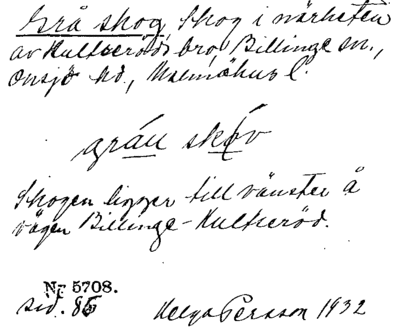 Grå skog, Skog i närheten
av Kultseröds bro, Billinge sn.,
Onsjö hd., Malmöhus l.
gráu skóv
Skogen ligger till vänster å
vägen Billinge-Kultseröd.
Nr 5708.
sid. 85
Helga Persson 1932